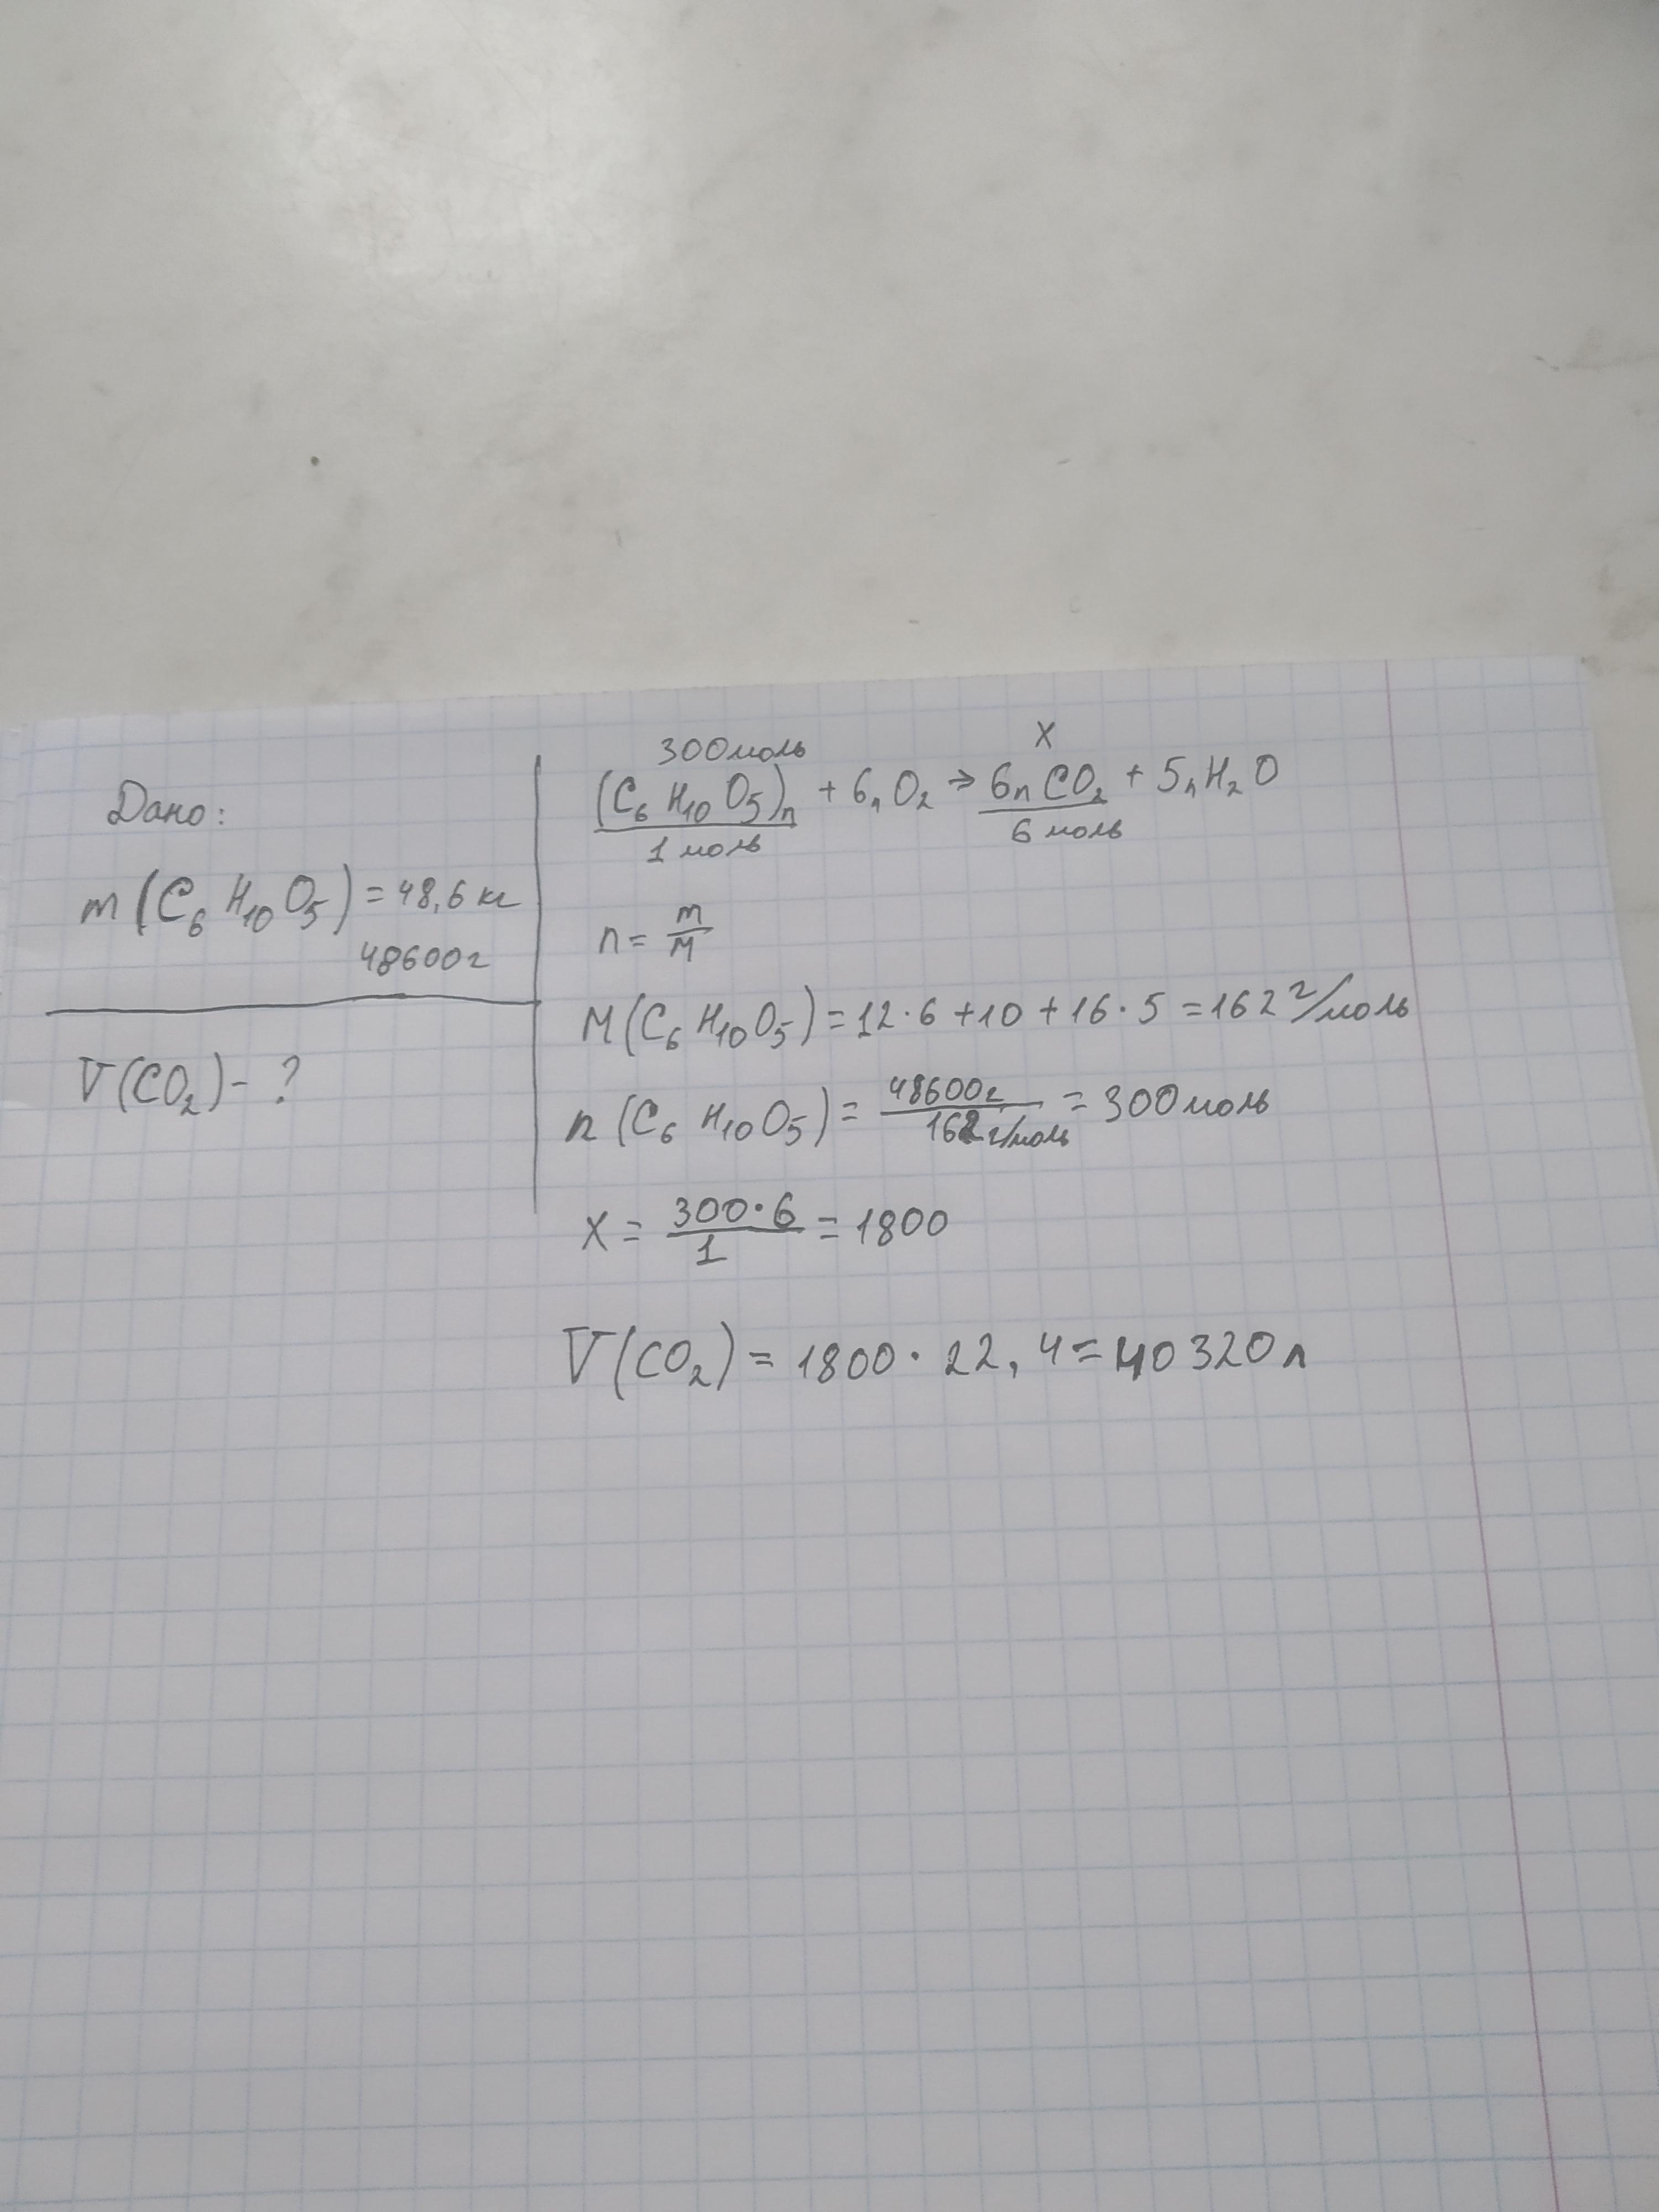 Дано:
m(C₆H₁₀O₅) = 48,6 кг
48600г
V(CO₂) - ?
300моль
X
(C₆H₁₀O₅)ₙ + 6ₙO₂ → 6ₙCO₂ + 5ₙH₂O
1 моль
6 моль
n = m/M
M(C₆H₁₀O₅) = 12·6 + 10 + 16·5 = 162 г/моль
n(C₆H₁₀O₅) = 48600г/162г/моль = 300моль
X = 300·6/1 = 1800
V(CO₂) = 1800·22,4 = 40320л